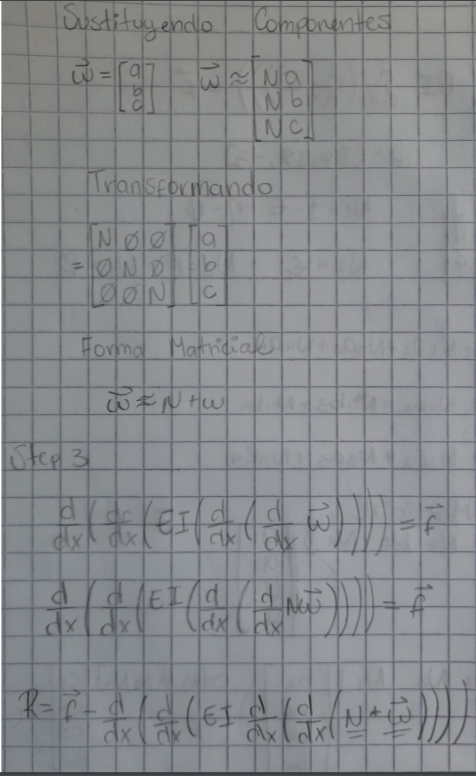 Sustituyendo Componentes
w⃗ = [a b c] w⃗ ≈ [Na Nb Nc]
Transformando
= [N ∅ ∅ ∅ N ∅ ∅ ∅ N] [a b c]
Forma Matricial
w⃗ ≈ N + w
Step 3
d/dx (d/dx (EI (d/dx (d/dx w⃗)))) = f⃗
d/dx (d/dx (EI (d/dx (d/dx Nw⃗)))) = f⃗
R = f⃗ - d/dx (d/dx (EI d/dx (d/dx (N + w⃗))))